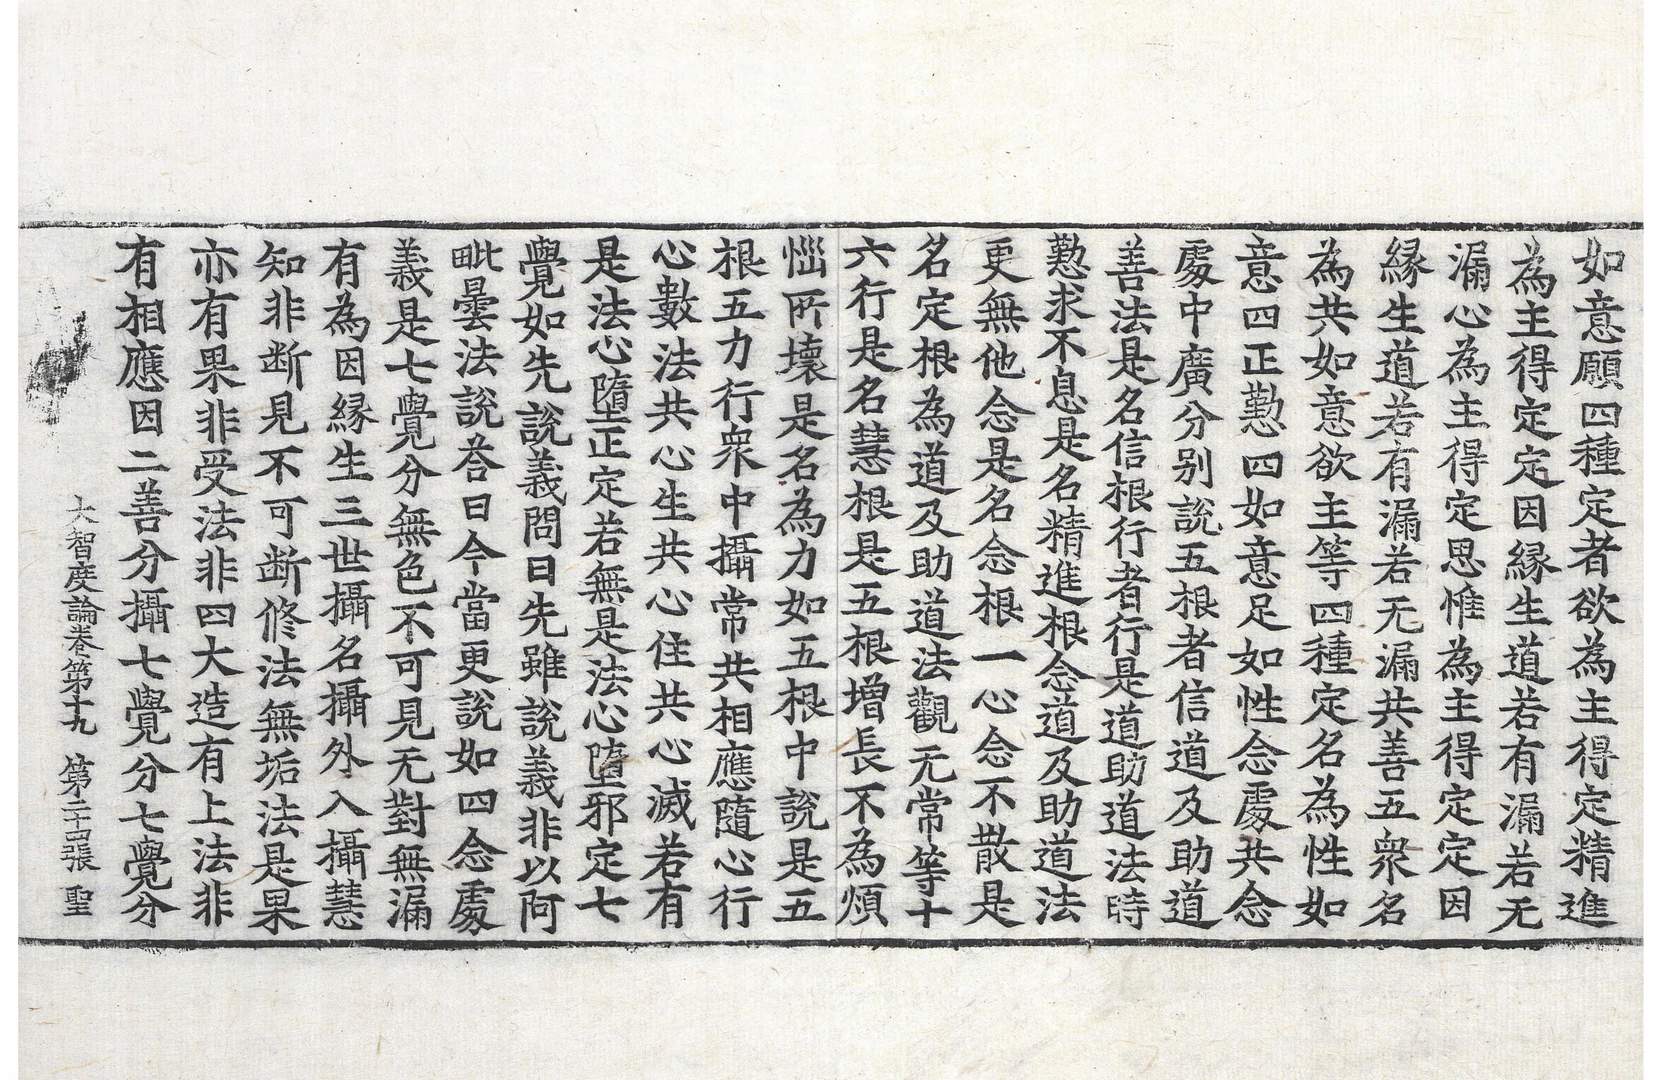 如意願四種定者欲為主得定精進
為主得定定因緣生道若有漏若无
漏心為主得定思惟為主得定定因
緣生道若有漏若无漏共善五衆名
為共如意欲主等四種定名為性如
意四正懃四如意足如性念處共念
處中廣分别說五根者信道及助道
善法是名信根行者行是道助道法時
懃求不息是名精進根念道及助道法
更無他念是名念根一心念不散是
名定根為道及助道法觀无常等十
六行是名慧根是五根增長不為煩
惱所壞是名為力如五根中說是五
根五力行衆中攝常共相應隨心行
心數法共心生共心住共心滅若有
是法心墮正定若無是法心墮邪定七
覺如先說義問曰先雖說義非以阿
毗曇法說荅曰今當更說如四念處
義是七覺分無色不可見无對無漏
有為因緣生三世攝名攝外入攝慧
知非断見不可断修法無垢法是果
亦有果非受法非四大造有上法非
有相應因二善分攝七覺分七覺分
大智度論卷第十九 第二十四張 聖